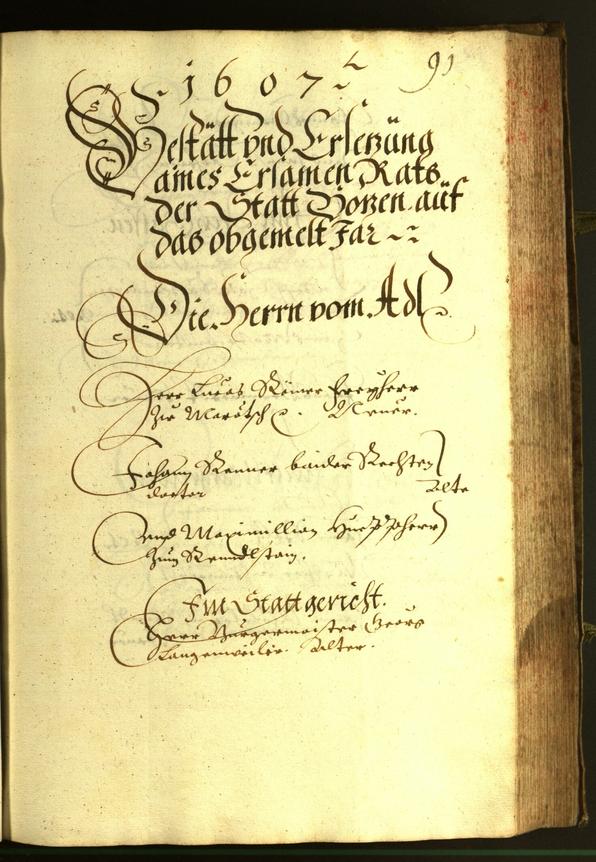 91
1607
Bestätt vnd Ersetzüng
aines Ersamen Rats
der Statt Botzen auf
das obgemelt Jar
Die Herrn vom Adl
Herr Lucas Römer Freyherr
zu Maretsch Neuer.
Johann Renner baider Rechten
doctor Alte
vnd Maximillian
zum Rendlstain.
Im Stattgericht.
Herr Burgermaister Georg
Langenweiler Alter.